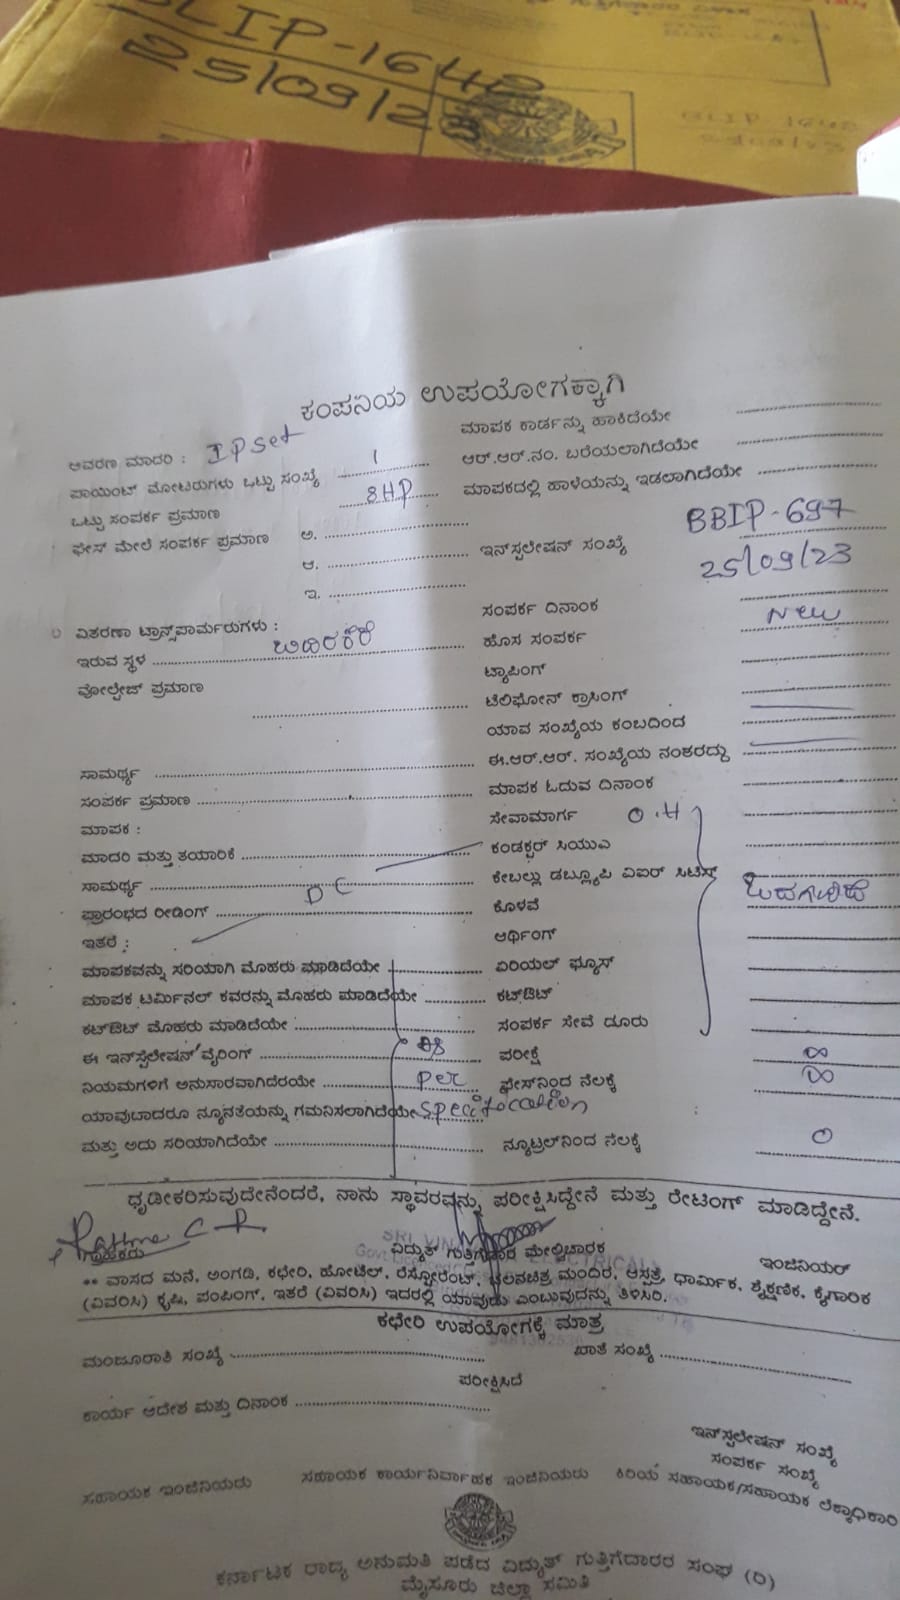 LIP-1640
25/09/23
ಕಂಪನಿಯ ಉಪಯೋಗಕ್ಕಾಗಿ
ಆವರಣ ಮಾದರಿ : IPSet
ಪಾಯಿಂಟ್ ಮೋಟರುಗಳು ಒಟ್ಟು ಸಂಖ್ಯೆ 1
ಒಟ್ಟು ಸಂಪರ್ಕ ಪ್ರಮಾಣ 8HP
ಫೇಸ್ ಮೇಲೆ ಸಂಪರ್ಕ ಪ್ರಮಾಣ ಅ.
ಆ.
ಇ.
ವಿತರಣಾ ಟ್ರಾನ್ಸ್‌ಪಾರ್ಮರುಗಳು :
ಇರುವ ಸ್ಥಳ
ವೋಲ್ಟೇಜ್ ಪ್ರಮಾಣ
ಸಾಮರ್ಥ್ಯ
ಸಂಪರ್ಕ ಪ್ರಮಾಣ
ಮಾಪಕ :
ಮಾದರಿ ಮತ್ತು ತಯಾರಿಕೆ
ಸಾಮರ್ಥ್ಯ
ಪ್ರಾರಂಭದ ರೀಡಿಂಗ್
ಇತರೆ :
ಮಾಪಕವನ್ನು ಸರಿಯಾಗಿ ಮೊಹರು ಮಾಡಿದೆಯೇ
ಮಾಪಕ ಟರ್ಮಿನಲ್ ಕವರನ್ನು ಮೊಹರು ಮಾಡಿದೆಯೇ
ಕಟ್‌ಔಟ್ ಮೊಹರು ಮಾಡಿದೆಯೇ
ಈ ಇನ್‌ಸ್ಪಲೇಷನ್ ವೈರಿಂಗ್ as
ನಿಯಮಗಳಿಗೆ ಅನುಸಾರವಾಗಿದೆರಯೇ per
ಯಾವುದಾದರೂ ನ್ಯೂನತೆಯನ್ನು ಗಮನಿಸಲಾಗಿದೆಯೇ specification
ಮತ್ತು ಅದು ಸರಿಯಾಗಿದೆಯೇ
ಮಾಪಕ ಕಾರ್ಡನ್ನು ಹಾಕಿದೆಯೇ
ಆರ್.ಆರ್.ನಂ. ಬರೆಯಲಾಗಿದೆಯೇ
ಮಾಪಕದಲ್ಲಿ ಹಾಳೆಯನ್ನು ಇಡಲಾಗಿದೆಯೇ
BBIP-697
ಇನ್‌ಸ್ಪಲೇಷನ್ ಸಂಖ್ಯೆ
25/09/23
ಸಂಪರ್ಕ ದಿನಾಂಕ
ಹೊಸ ಸಂಪರ್ಕ New
ಟ್ಯಾಪಿಂಗ್
ಟೆಲಿಫೋನ್ ಕ್ರಾಸಿಂಗ್
ಯಾವ ಸಂಖ್ಯೆಯ ಕಂಬದಿಂದ
ಈ.ಆರ್.ಆರ್. ಸಂಖ್ಯೆಯ ನಂತರದ್ದು
ಮಾಪಕ ಓದುವ ದಿನಾಂಕ
ಸೇವಾಮಾರ್ಗ O.H
ಕಂಡಕ್ಟರ್ ಸಿಯುಎ
ಕೇಬಲ್ಲು ಡಬ್ಲ್ಯೂಪಿ ಏಐರ್ ಸಿಟಿಸ್
ಕೊಳವೆ
ಆರ್ಥಿಂಗ್
ಏರಿಯಲ್ ಫ್ಯೂಸ್
ಕಟ್‌ಔಟ್
ಸಂಪರ್ಕ ಸೇವೆ ದೂರು
ಪರೀಕ್ಷೆ ∞
ಫೇಸ್‌ನಿಂದ ನೆಲಕ್ಕೆ ∞
ನ್ಯೂಟ್ರಲ್‌ನಿಂದ ನೆಲಕ್ಕೆ 0
ಧೃಡೀಕರಿಸುವುದೇನೆಂದರೆ, ನಾನು ಸ್ಥಾವರವನ್ನು ಪರೀಕ್ಷಿಸಿದ್ದೇನೆ ಮತ್ತು ರೇಟಿಂಗ್ ಮಾಡಿದ್ದೇನೆ.
ಗ್ರಾಹಕರು ವಿದ್ಯುತ್ ಗುತ್ತಿಗೆದಾರ ಮೇಲ್ವಿಚಾರಕ ಇಂಜಿನಿಯರ್
** ವಾಸದ ಮನೆ, ಅಂಗಡಿ, ಕಛೇರಿ, ಹೋಟೆಲ್, ರೆಸ್ಟೋರೆಂಟ್, ಚಲನಚಿತ್ರ ಮಂದಿರ, ಆಸ್ಪತ್ರೆ, ಧಾರ್ಮಿಕ, ಶೈಕ್ಷಣಿಕ, ಕೈಗಾರಿಕ
(ವಿವರಿಸಿ) ಕೃಷಿ, ಪಂಪಿಂಗ್, ಇತರೆ (ವಿವರಿಸಿ) ಇದರಲ್ಲಿ ಯಾವುದು ಎಂಬುವುದನ್ನು ತಿಳಿಸಿರಿ.
ಕಛೇರಿ ಉಪಯೋಗಕ್ಕೆ ಮಾತ್ರ
ಮಂಜೂರಾತಿ ಸಂಖ್ಯೆ ಖಾತೆ ಸಂಖ್ಯೆ
ಪರೀಕ್ಷಿಸಿದೆ
ಕಾರ್ಯ ಆದೇಶ ಮತ್ತು ದಿನಾಂಕ
ಇನ್‌ಸ್ಪಲೇಷನ್ ಸಂಖ್ಯೆ
ಸಂಪರ್ಕ ಸಂಖ್ಯೆ
ಸಹಾಯಕ ಇಂಜಿನಿಯರು ಸಹಾಯಕ ಕಾರ್ಯನಿರ್ವಾಹಕ ಇಂಜಿನಿಯರು ಕಿರಿಯ ಸಹಾಯಕ/ಸಹಾಯಕ ಲೆಕ್ಕಾಧಿಕಾರಿ
ಕರ್ನಾಟಕ ರಾಜ್ಯ ಅನುಮತಿ ಪಡೆದ ವಿದ್ಯುತ್ ಗುತ್ತಿಗೆದಾರರ ಸಂಘ (ರಿ)
ಮೈಸೂರು ಜಿಲ್ಲಾ ಸಮಿತಿ